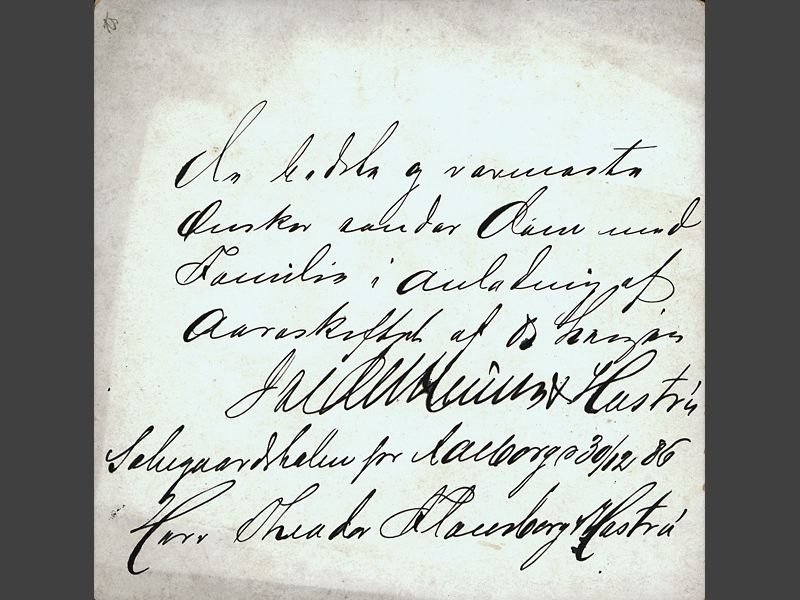 De bedste og varmeste
Ønsker sender Dem med
Familie i Anledning af
Aarsskiftet af Os
Jac & Hustru
for Aalborg 30/12 86
Herr Theodor & Hustru